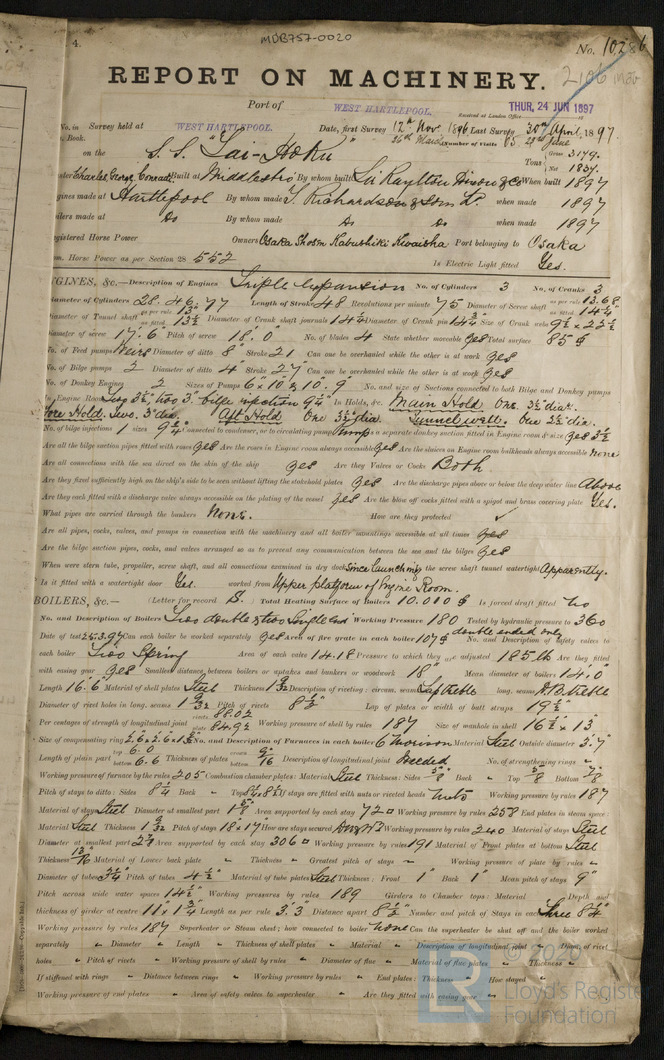 4.
MDB757-0020
No. 10286
2106 Mab
REPORT ON MACHINERY.
Port of WEST HARTLEPOOL. Received at London Office THUR, 24 JUN 1897
No. in Survey held at WEST HARTLEPOOL. Date, first Survey 12th Nov. 1896 Last Survey 30th April, 1897.
Book. (Number of Visits 83.
on the S.S. "Tai-Hoku" Tons Gross 3179. Net 1837.
Charles George Conradi Built at Middlesbro By whom built Sir Raylton Dixon & Co When built 1897
gines made at Hartlepool By whom made T. Richardson & Sons Ld. when made 1897
ilers made at Do By whom made Do Do when made 1897
egistered Horse Power Owners Osaka Shosen Kabushiki Kwaisha Port belonging to Osaka
m. Horse Power as per Section 28 552 Is Electric Light fitted Yes.
NGINES, &c.— Description of Engines Triple Expansion No. of Cylinders 3 No. of Cranks 3
iameter of Cylinders 28. 46. 77 Length of Stroke 48 Revolutions per minute 75 Diameter of Screw shaft as per rule 13.68 as fitted 14¼"
Diameter of Tunnel shaft as per rule 13" as fitted 13½ Diameter of Crank shaft journals 14¼ Diameter of Crank pin 14¾ Size of Crank webs 9½ x 22½
Diameter of screw 17'.6" Pitch of screw 18'.0" No. of blades 4 State whether moveable yes Total surface 85 ft
No. of Feed pumps Weirs Diameter of ditto 8" Stroke 21 Can one be overhauled while the other is at work yes
No. of Bilge pumps 2 Diameter of ditto 4 Stroke 27" Can one be overhauled while the other is at work yes
No. of Donkey Engines 2 Sizes of Pumps 6 x 10 & 10. 9" No. and size of Suctions connected to both Bilge and Donkey pumps
Engine Room Two 3½", two 3" bilge injection 9¼" In Holds, &c. Main Hold One. 3½" diar.
Fore Hold. Two. 3" dia. Aft Hold One 3½" dia. Tunnel well. One 2½" dia.
No. of bilge injections 1 sizes 9¼" Connected to condenser, or to circulating pump Pump Is a separate donkey suction fitted in Engine room & size yes 3½
Are all the bilge suction pipes fitted with roses yes Are the roses in Engine room always accessible yes Are the sluices on Engine room bulkheads always accessible none
Are all connections with the sea direct on the skin of the ship yes Are they Valves or Cocks Both.
Are they fixed sufficiently high on the ship's side to be seen without lifting the stokehold plates yes Are the discharge pipes above or below the deep water line Above
Are they each fitted with a discharge valve always accessible on the plating of the vessel yes Are the blow off cocks fitted with a spigot and brass covering plate Yes.
What pipes are carried through the bunkers None. How are they protected ✓
Are all pipes, cocks, valves, and pumps in connection with the machinery and all boiler mountings accessible at all times yes
Are the bilge suction pipes, cocks, and valves arranged so as to prevent any communication between the sea and the bilges yes
When were stern tube, propeller, screw shaft, and all connections examined in dry dock Since launching Is the screw shaft tunnel watertight Apparently.
Is it fitted with a watertight door Yes. worked from Upper platform of Engine Room.
BOILERS, &c.— (Letter for record S.) Total Heating Surface of Boilers 10.010 ft Is forced draft fitted No
No. and Description of Boilers Two double & two Single End Working Pressure 180 Tested by hydraulic pressure to 360
Date of test 25.3.97 Can each boiler be worked separately yes Area of fire grate in each boiler 107 ft double ended only No. and Description of safety valves to
each boiler Two Spring Area of each valve 14.18 Pressure to which they are adjusted 185 lb Are they fitted
with easing gear yes Smallest distance between boilers or uptakes and bunkers or woodwork 18" Mean diameter of boilers 14.0"
Length 16.6 Material of shell plates Steel Thickness 1 9/32 Description of riveting: circum. seams Lap treble long. seams D.B. treble
Diameter of rivet holes in long. seams 1 9/32 Pitch of rivets 8½" Lap of plates or width of butt straps 19½"
Per centages of strength of longitudinal joint rivets 88.02 plate 84.92 Working pressure of shell by rules 187 Size of manhole in shell 16½" x 13"
Size of compensating ring No. and Description of Furnaces in each boiler 6 Morison Material Steel Outside diameter 3.7"
Length of plain part top 6.0 bottom 6.6 Thickness of plates crown bottom 9/16" Description of longitudinal joint Welded No. of strengthening rings ~
Working pressure of furnace by the rules 205 Combustion chamber plates: Material Steel Thickness: Sides 5/8" Back " Top 5/8 Bottom 7/8"
Pitch of stays to ditto: Sides 8¼ Back " Top 8¼ x 8½ If stays are fitted with nuts or riveted heads nuts Working pressure by rules 187
Material of stays Steel Diameter at smallest part 1 5/8" Area supported by each stay 72 Working pressure by rules 258 End plates in steam space:
Material Steel Thickness 1 9/32 Pitch of stays 18 x 17 How are stays secured Working pressure by rules 240 Material of stays Steel
Diameter at smallest part 2 7/8 Area supported by each stay 306 Working pressure by rules 191 Material of Front plates at bottom Steel
Thickness 13/16 Material of Lower back plate " Thickness " Greatest pitch of stays " Working pressure of plate by rules "
Diameter of tubes 3¼" Pitch of tubes 4½" Material of tube plates Steel Thickness: Front 1" Back 1" Mean pitch of stays 9"
Pitch across wide water spaces 14½" Working pressures by rules 189 Girders to Chamber tops: Material Depth and
thickness of girder at centre 11" x 1¾ Length as per rule 3'.3 Distance apart 8½" Number and pitch of Stays in each Three 8¼"
Working pressure by rules 187 Superheater or Steam chest; how connected to boiler none Can the superheater be shut off and the boiler worked
separately " Diameter " Length " Thickness of shell plates " Material " Description of longitudinal joint " Diam. of rivet
holes " Pitch of rivets " Working pressure of shell by rules " Diameter of flue " Material of flue plates " Thickness
If stiffened with rings " Distance between rings " Working pressure by rules " End plates: Thickness " How stayed "
Working pressure of end plates " Area of safety valves to superheater " Are they fitted with easing gear "
LR
Lloyd's Register
Foundation